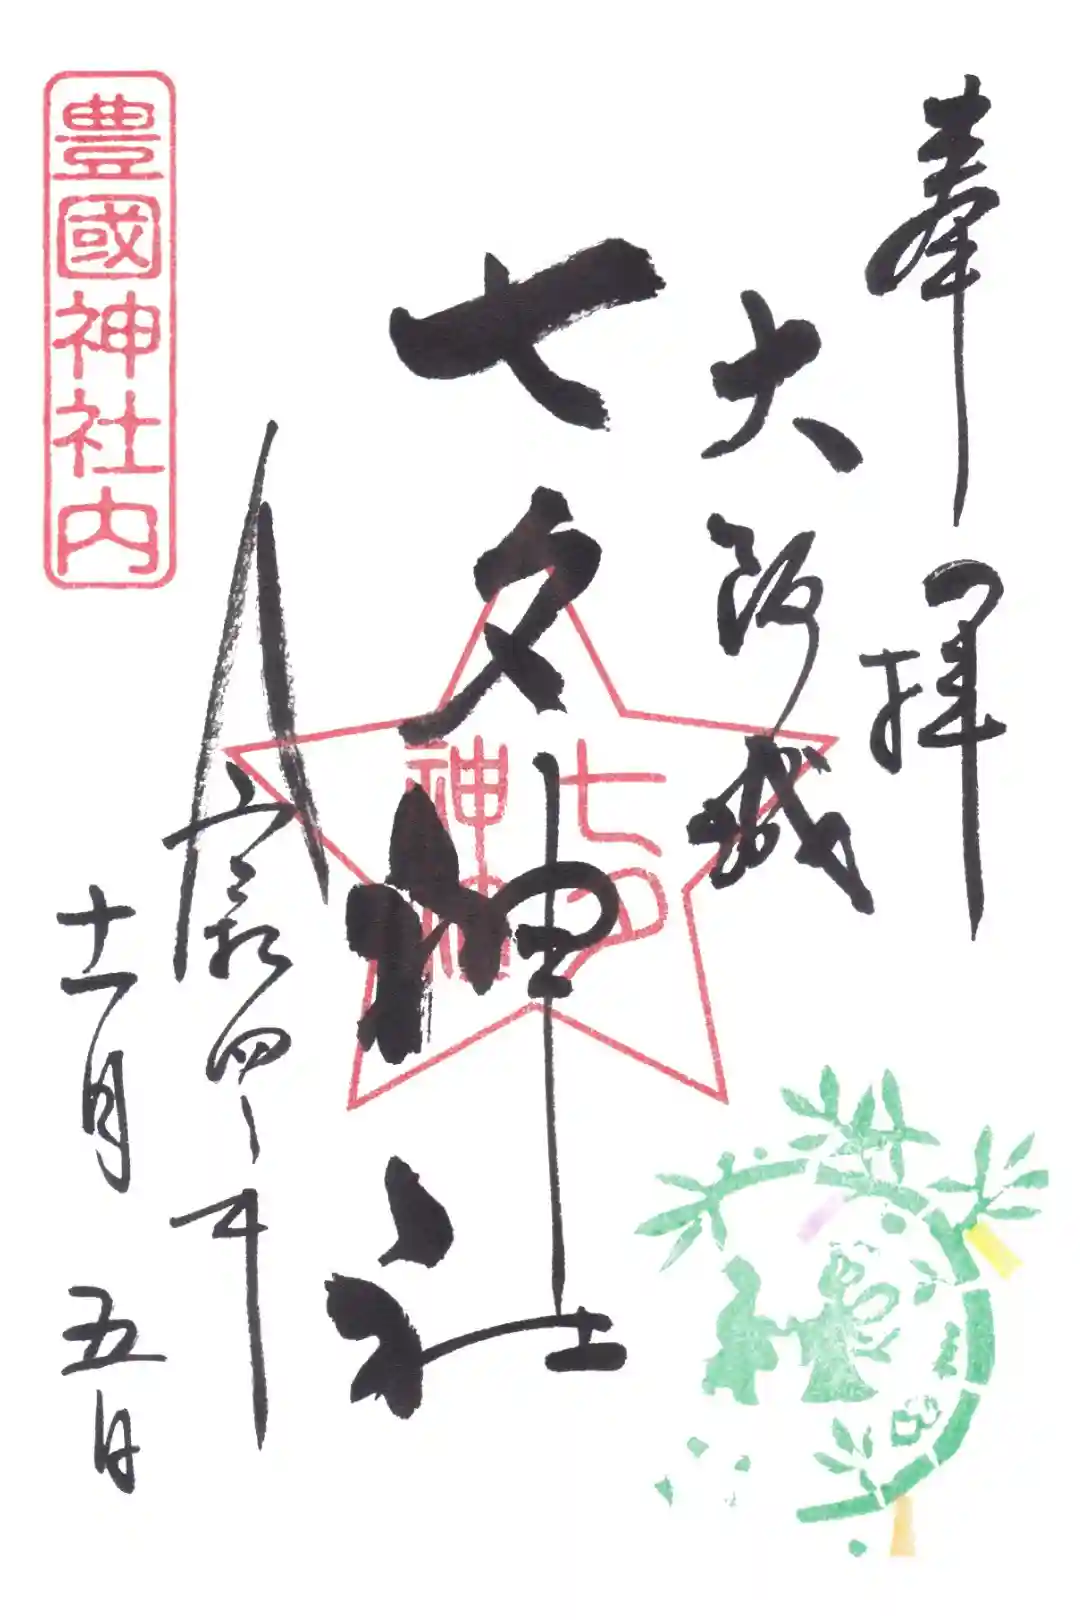 奉拝
大阪城
七夕神社
七夕
神社
令和四年
十一月五日
豊國神社内